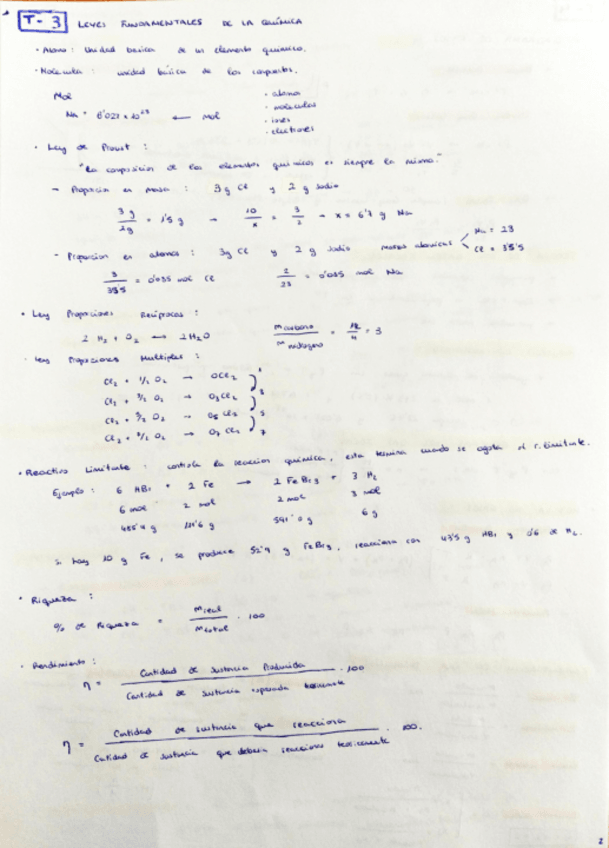 T-3 LEYES FUNDAMENTALES DE LA QUÍMICA
· Atomo: Unidad basica de un elemento quimico.
· Molecula: unidad básica de los compuestos.
Mol
· atomos
· moleculas
Na = 6'022 x 10²³ ← mol
· iones
· electrones
· Ley de Proust:
"La composición de los elementos quimicos es siempre la misma."
→ Proporcion en masa: 3g Cl y 2 g Sodio
3 g / 2g = 1'5 g → 10/x = 3/2 → x = 6'7 g Na
- Proporcion en atomos: 3g Cl y 2 g Sodio masas atomicas < Na = 23
Cl = 35'5
3/35'5 = 0'085 mol Cl 2/23 = 0'085 mol Na
· Ley Proporciones Reciprocas:
2 H₂ + O₂ → 2H₂O m carbono / m hidrogeno = 12/4 = 3
· Ley Proporciones Multiples:
Cl₂ + 1/2 O₂ → OCl₂ 1
Cl₂ + 3/2 O₂ → O₃Cl₂ 3
Cl₂ + 5/2 O₂ → O₅Cl₂ 5
Cl₂ + 7/2 O₂ → O₇Cl₂ 7
· Reactivo Limitante: controla la reaccion química, esta termina cuando se agota el r. limitante.
Ejemplo: 6 HBr + 2 Fe → 2 FeBr₃ + 3 H₂
6 mol 2 mol 2 mol 3 mol
485'4 g 111'6 g 591'0 g 6 g
Si hay 10 g Fe, se produce 52'9 g FeBr₃, reacciona con 43'5 g HBr y 0'6 de H₂.
· Riqueza:
% de Riqueza = m real / m total · 100
· Rendimiento:
η = Cantidad de Sustancia Producida / Cantidad de Sustancia esperada teoricamente · 100
η = Cantidad de sustancia que reacciona / Cantidad de sustancia que deberia reaccionar teoricamente · 100.
2